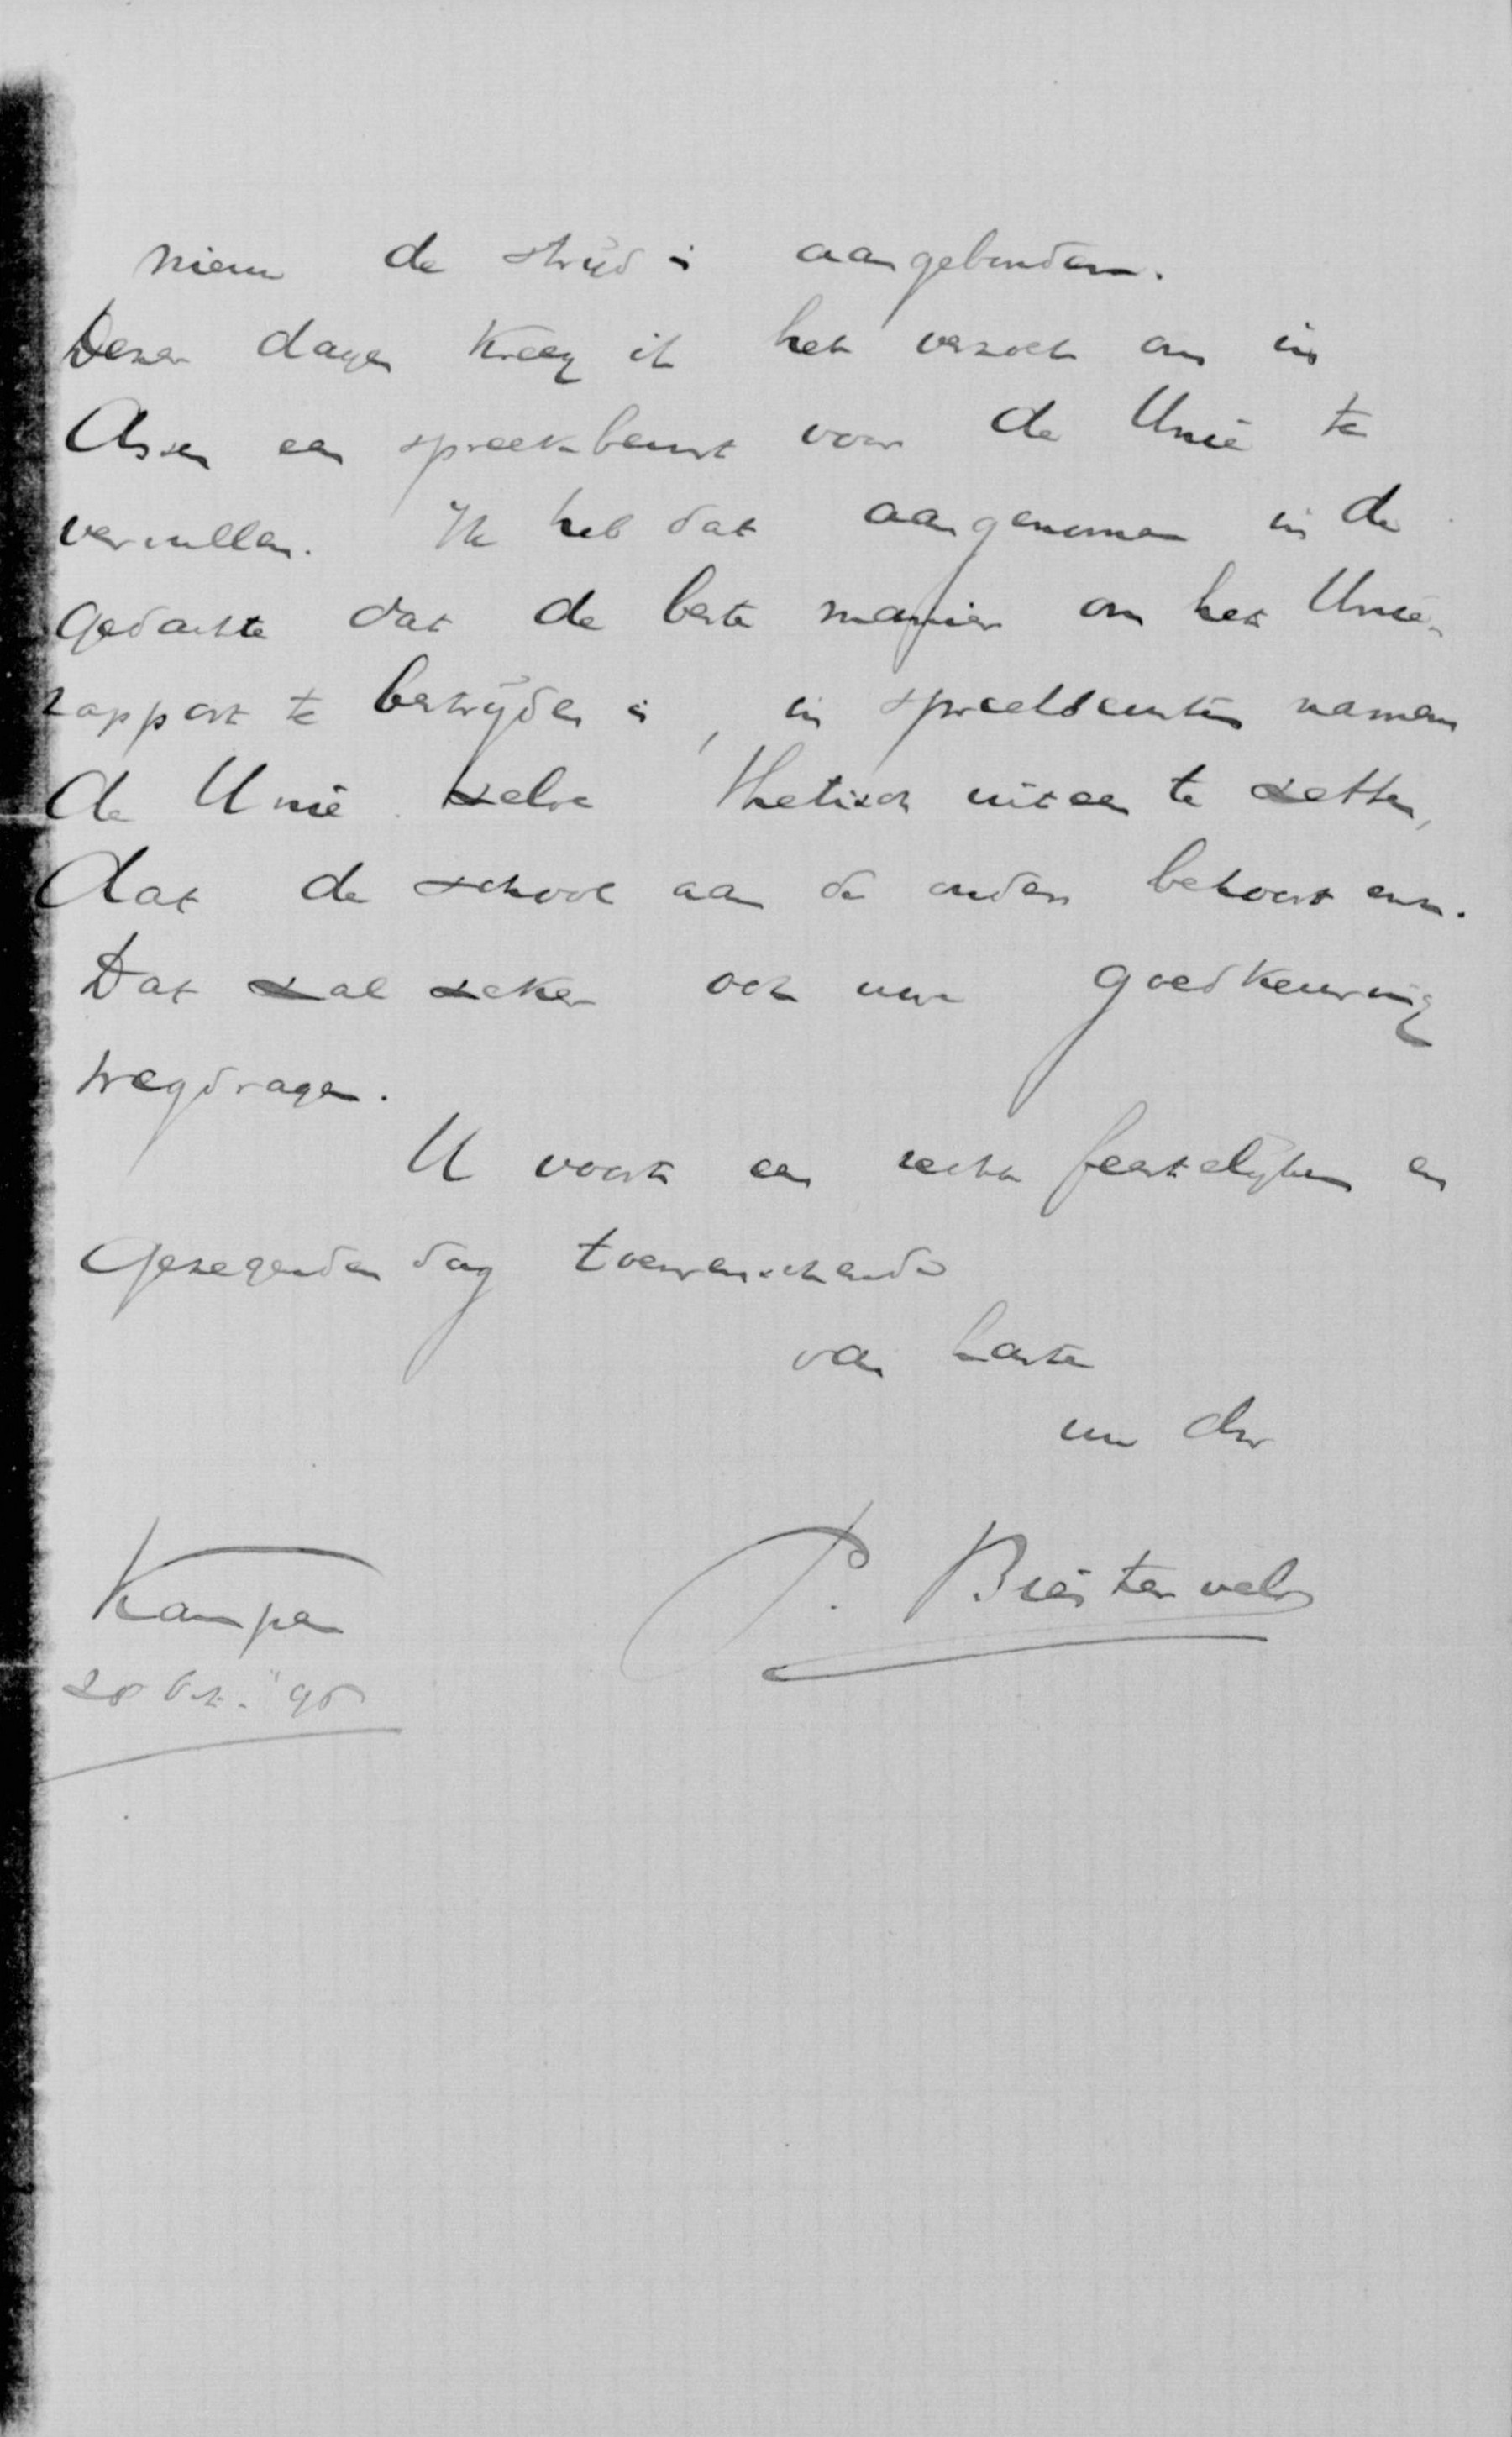 nieuw de strijd is aangebonden.
Dezer dagen kreeg ik het verzoek om in
Assen een spreekbeurt voor de Unie te
vervullen. Ik heb dat aangenomen in de
gedachte dat de beste manier om het Unie-
rapport te bestrijden is, in spreekbeurten namens
de Unie zelve thetisch uiteen te zetten,
dat de school aan de ouders behoort enz.
Dat zal zeker ook uw goedkeuring
wegdragen.
U voorts een recht feestelijken en
gezegenden dag toewenschende
van harte
uw dw
P. Biesterveld
Kampen
28 Oct. '95